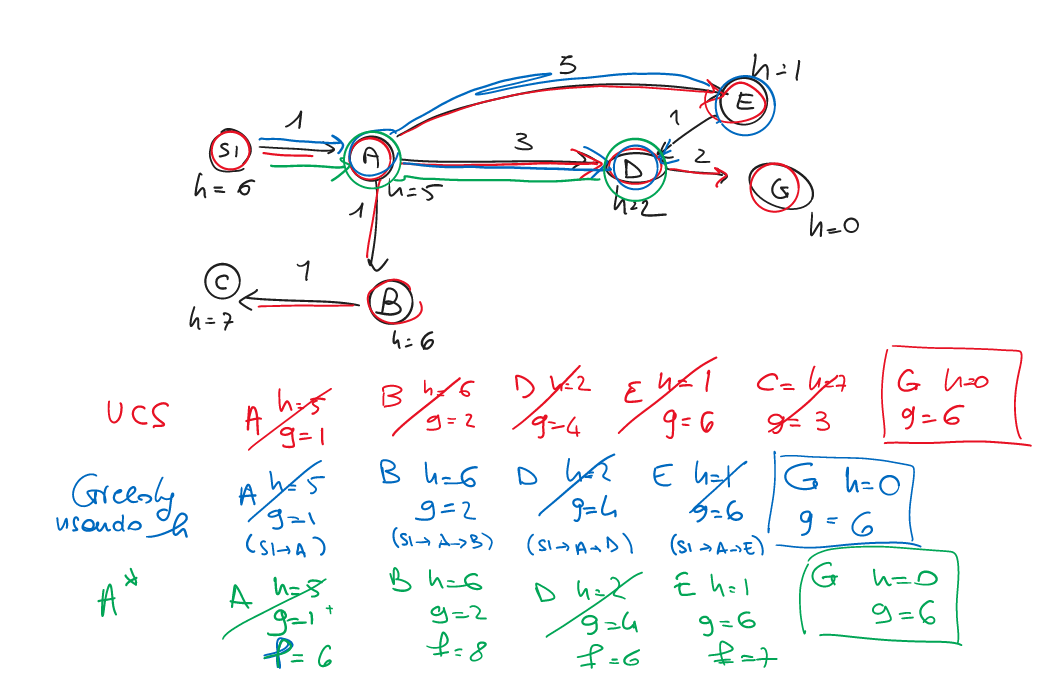 5
h=1
E
1
S1
h=6
1
A
h=5
3
D
h=2
2
G
h=0
1
B
h=6
1
C
h=7
UCS
A h=5 g=1
B h=6 g=2
D h=2 g=4
E h=1 g=6
C= h=7 g=3
G h=0 g=6
Greedy usando h
A h=5 g=1 (S1→A)
B h=6 g=2 (S1→A→B)
D h=2 g=4 (S1→A→D)
E h=1 g=6 (S1→A→E)
G h=0 g=6
A*
A h=5 g=1+ f=6
B h=6 g=2 f=8
D h=2 g=4 f=6
E h=1 g=6 f=7
G h=0 g=6